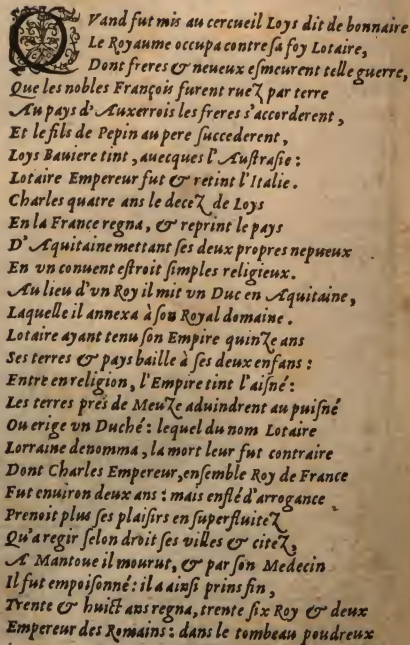 QVand fut mis au cercueil Loys dit de bonnaire
Le Royaume occupa contre ſa foy Lotaire,
Dont freres & neueux eſmeurent telle guerre,
Que les nobles François furent ruez par terre
Au pays d'Auxerrois les freres s'accorderent,
Et le fils de Pepin au pere ſuccederent,
Loys Bauiere tint, auecques l'Auſtraſie:
Lotaire Empereur fut & retint l'Italie.
Charles quatre ans le decez de Loys
En la France regna, & reprint le pays
D'Aquitaine mettant ſes deux propres nepueux
En vn conuent eſtroit ſimples religieux.
Au lieu d'vn Roy il mit vn Duc en Aquitaine,
Laquelle il annexa à ſon Royal domaine.
Lotaire ayant tenu ſon Empire quinze ans
Ses terres & pays baille à ſes deux enfans:
Entre en religion, l'Empire tint l'aiſné:
Les terres prés de Meuze aduindrent au puiſné
Ou erige vn Duché: lequel du nom Lotaire
Lorraine denomma, la mort leur fut contraire
Dont Charles Empereur, enſemble Roy de France
Fut enuiron deux ans: mais enflé d'arrogance
Prenoit plus ſes plaiſirs en ſuperfluitez
Qu'a regir ſelon droit ſes villes & citez,
A Mantoue il mourut, & par ſon Medecin
Il fut empoiſonné: il a ainſi prins fin,
Trente & huict ans regna, trente ſix Roy & deux
Empereur des Romains: dans le tombeau poudreux